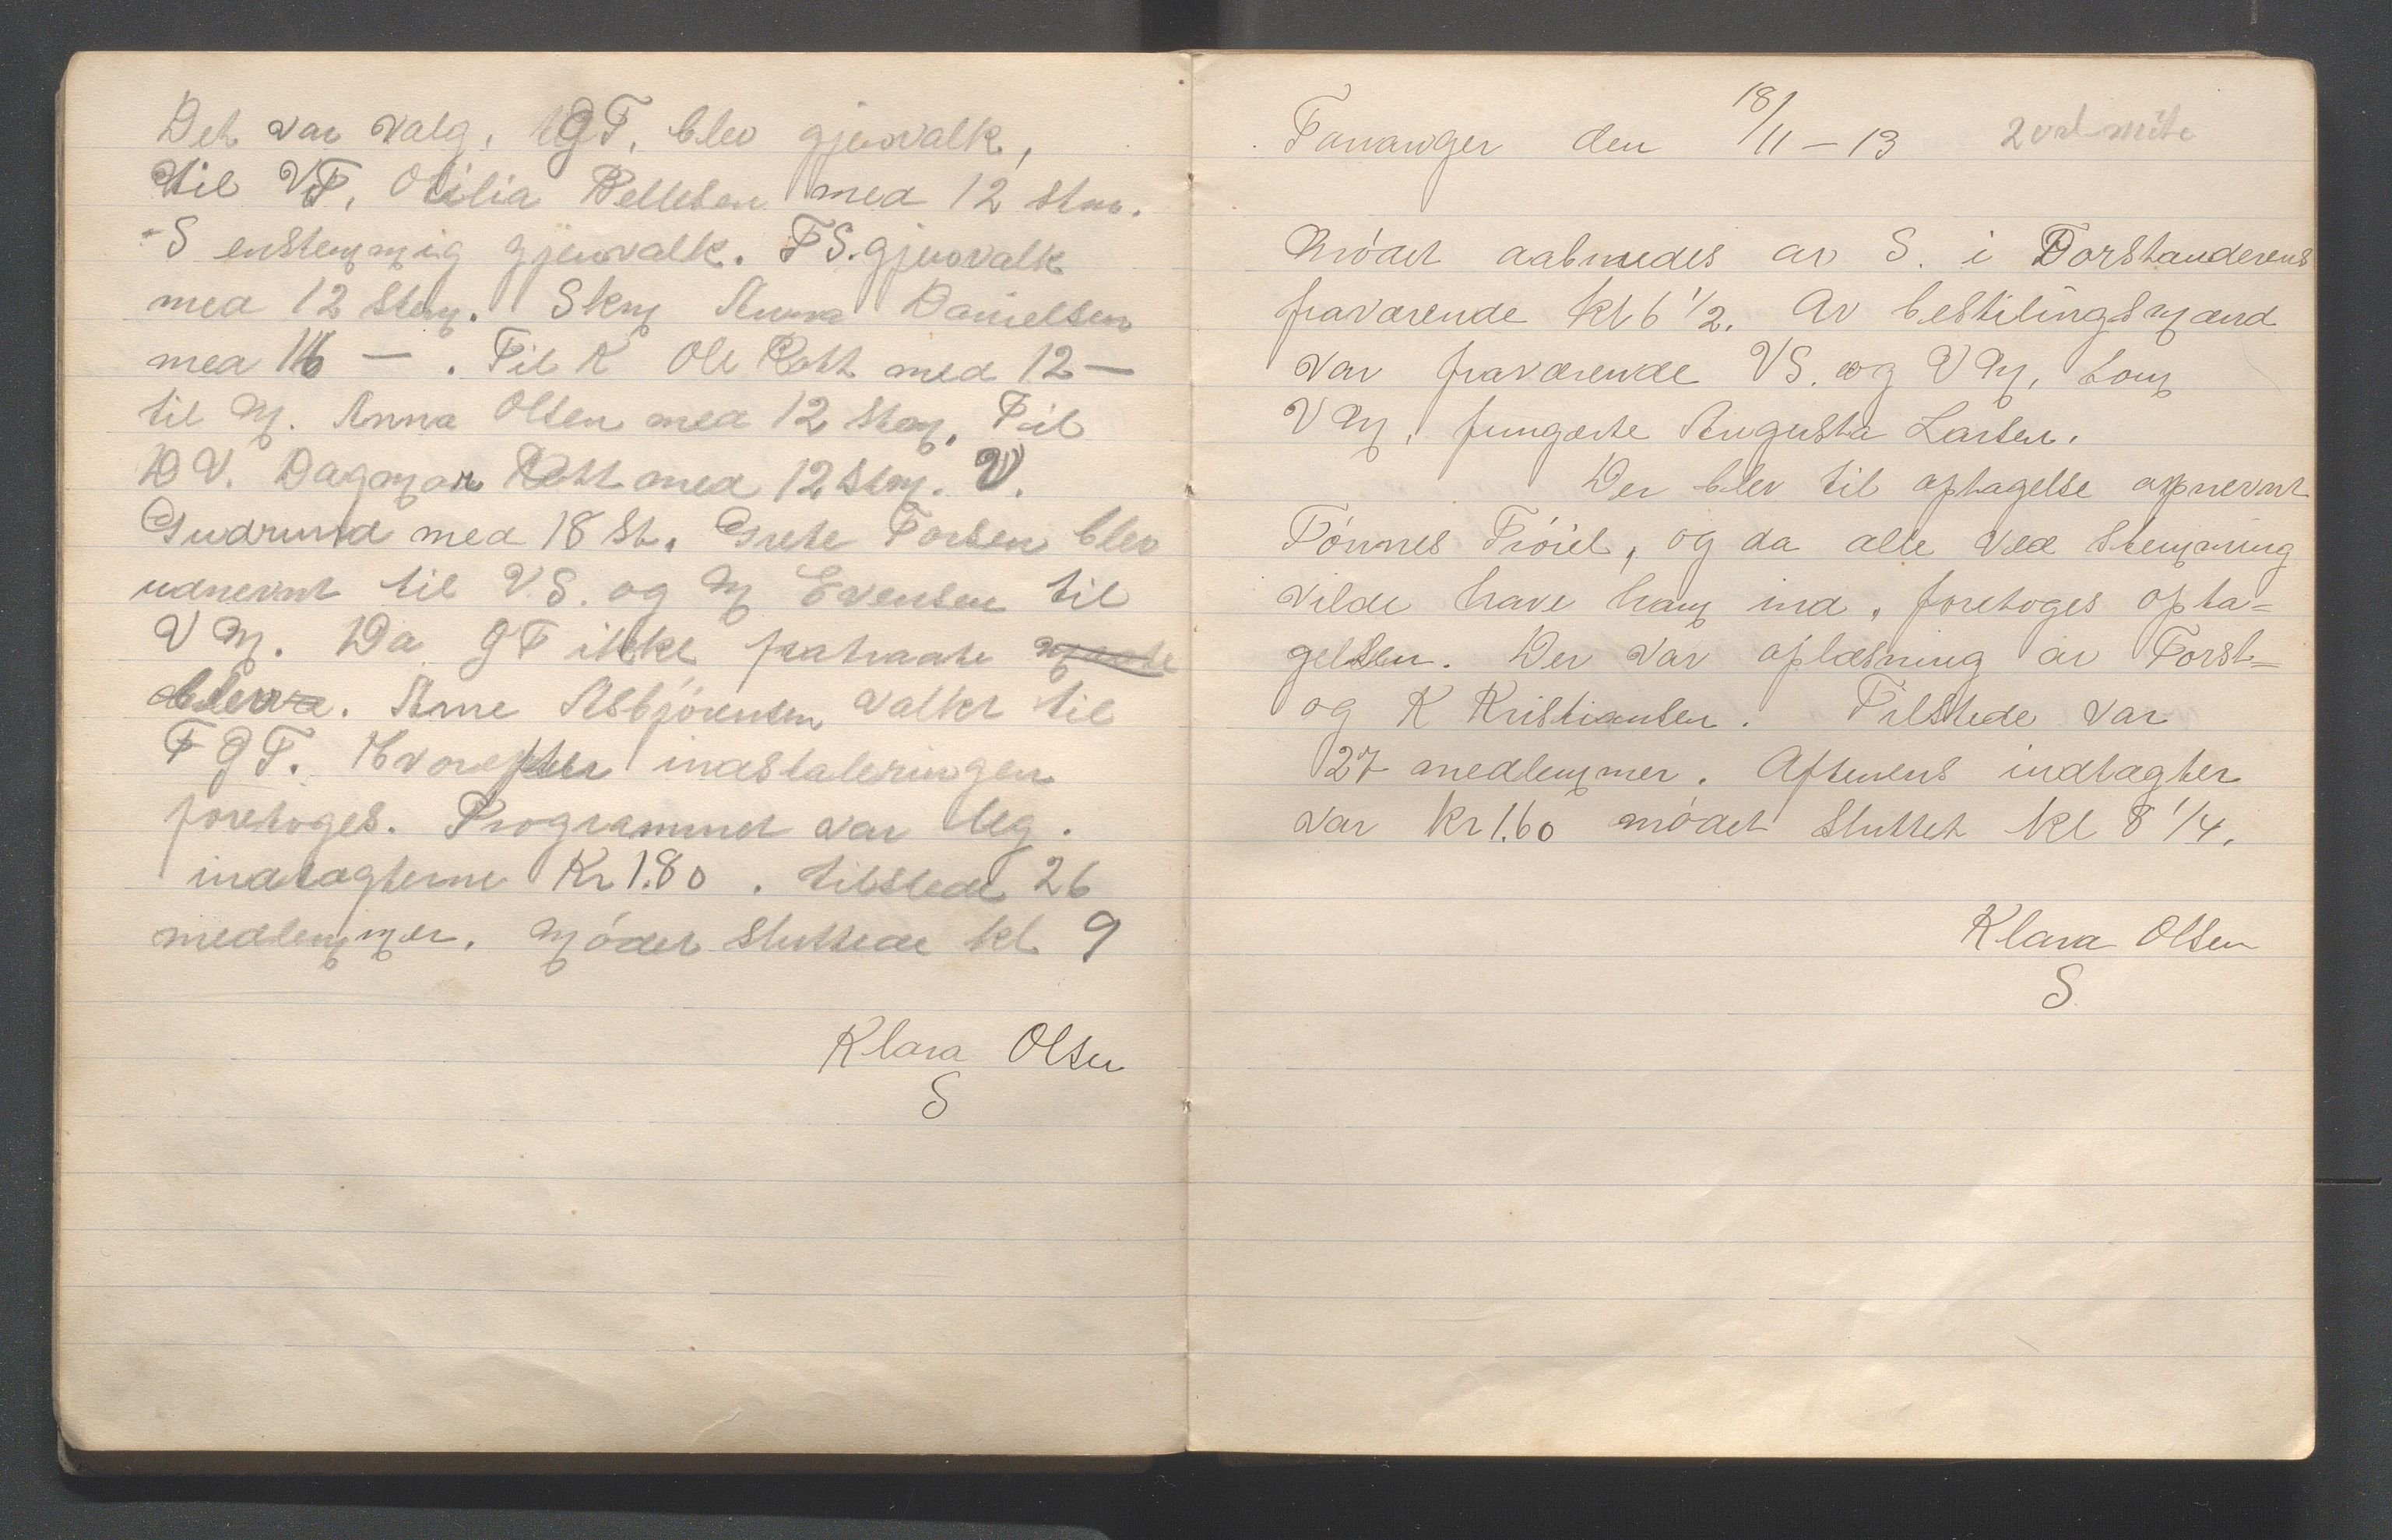 Det var valg. GT. blev gjenvalk,
til VT. Otilia Pellesen med 12 stm.
S enstemmig gjenvalk. FS. gjenvalk
med 12 stem. Skm Anna Danielsen
med 16 — . Til K Ole Rott med 12 —
til M. Anna Olsen med 12 stem. Til
DV. Dagmar Rott med 12 stm. V.
Gudrund med 18 St. Grete Torsen blev
udnevnt til V.S. og M Evensen til
VM. Da GT ikke fratraate maate
bleva. Arne Asbjörnsen valkt til
FGT. Hvorefter indstaleringen
foretoges. Programmet var leg.
indtagterne Kr 1.80 . tilstede 26
medlemmer. Mödet sluttede kl 9
Klara Olsen
S
Tananger den 18/11 – 13 2 ord. möte
Mödet aabnedes av S. i Forstanderens
fraværende kl 6 1/2. Av bestilingsmænd
var fraværende VS. og VM, som
VM. fungerte Augusta Larsen.
Der blev til optagelse opnevnt
Tönnes Tröiel, og da alle ved stemming
vilde have ham ind, foretoges opta=
gelsen. Der var oplæsning av Forst=
og K Kristiansen. Tilstede var
27 medlemmer. Aftenens indtagter
var kr 1.60 mödet sluttet kl 8 1/4.
Klara Olsen
S